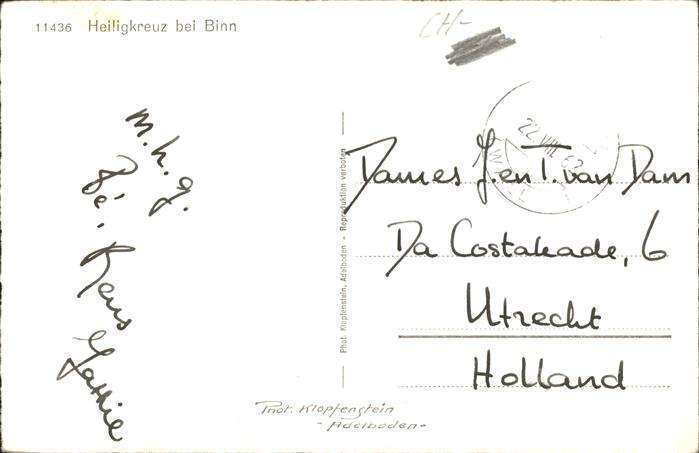 11436 Heiligkreuz bei Binn
CH-
m.h.g.
Bé.
Hans
Phot. Klopfenstein, Adelboden - Reproduktion verboten
22 VIII 62
Dames J. en T. van Dam
Da Costakade, 6
Utrecht
Holland
Phot. Klopfenstein
- Adelboden -